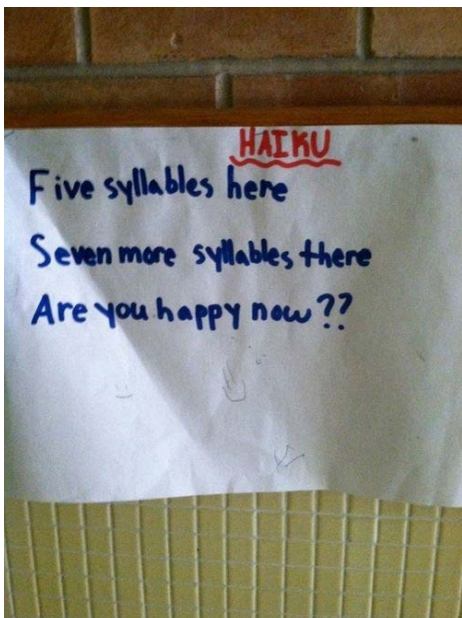 HAIKU
Five syllables here
Seven more syllables there
Are you happy now??